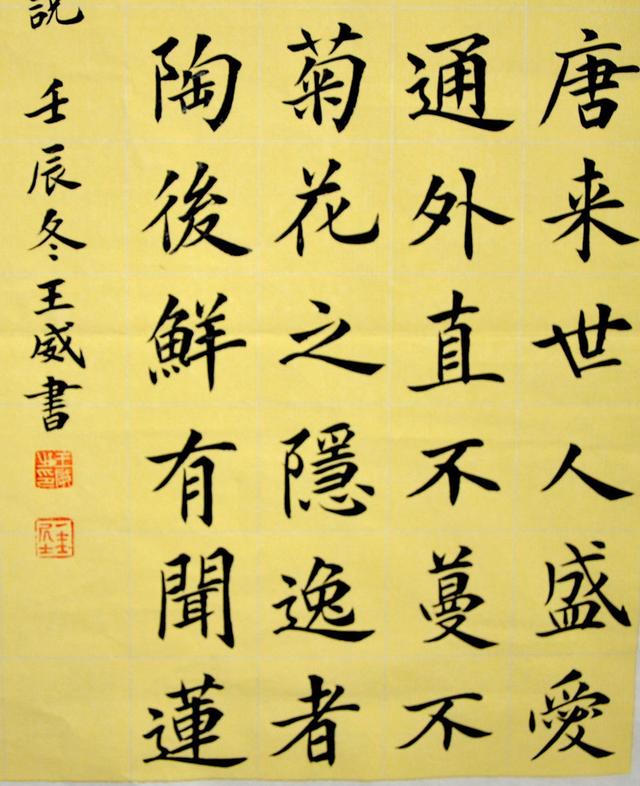 唐来世人盛愛
通外直不蔓不
菊花之隱逸者
陶後鮮有聞蓮
説壬辰冬王威書